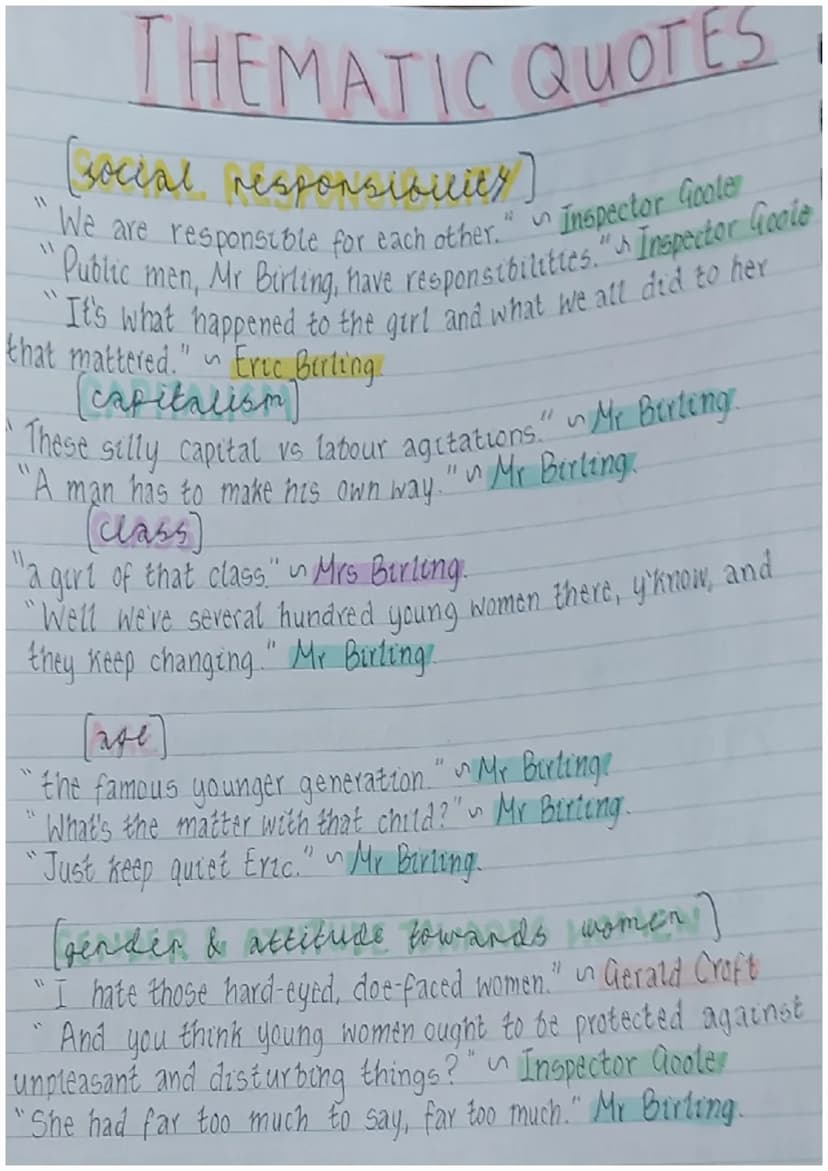 THEMATIC QUOTES
[social responsibility]
"We are responsible for each other." ~ Inspector Goole
"Public men, Mr Birling, have responsibilities." ~ Inspector Goole
"It's what happened to the girl and what we all did to her
that mattered." ~ Eric Birling
[capitalism]
"These silly capital vs labour agitations." ~ Mr Birling.
"A man has to make his own way." ~ Mr Birling.
[class]
"a girl of that class." ~ Mrs Birling.
"Well we've several hundred young women there, y'know, and
they keep changing." Mr Birling.
[age]
"the famous younger generation." ~ Mr Birling.
"What's the matter with that child?" ~ Mr Birling.
"Just keep quiet Eric." ~ Mr Birling.
[gender & attitude towards women]
"I hate those hard-eyed, doe-faced women." ~ Gerald Croft
"And you think young women ought to be protected against
unpleasant and disturbing things?" ~ Inspector Goole
"She had far too much to say, far too much." Mr Birling.